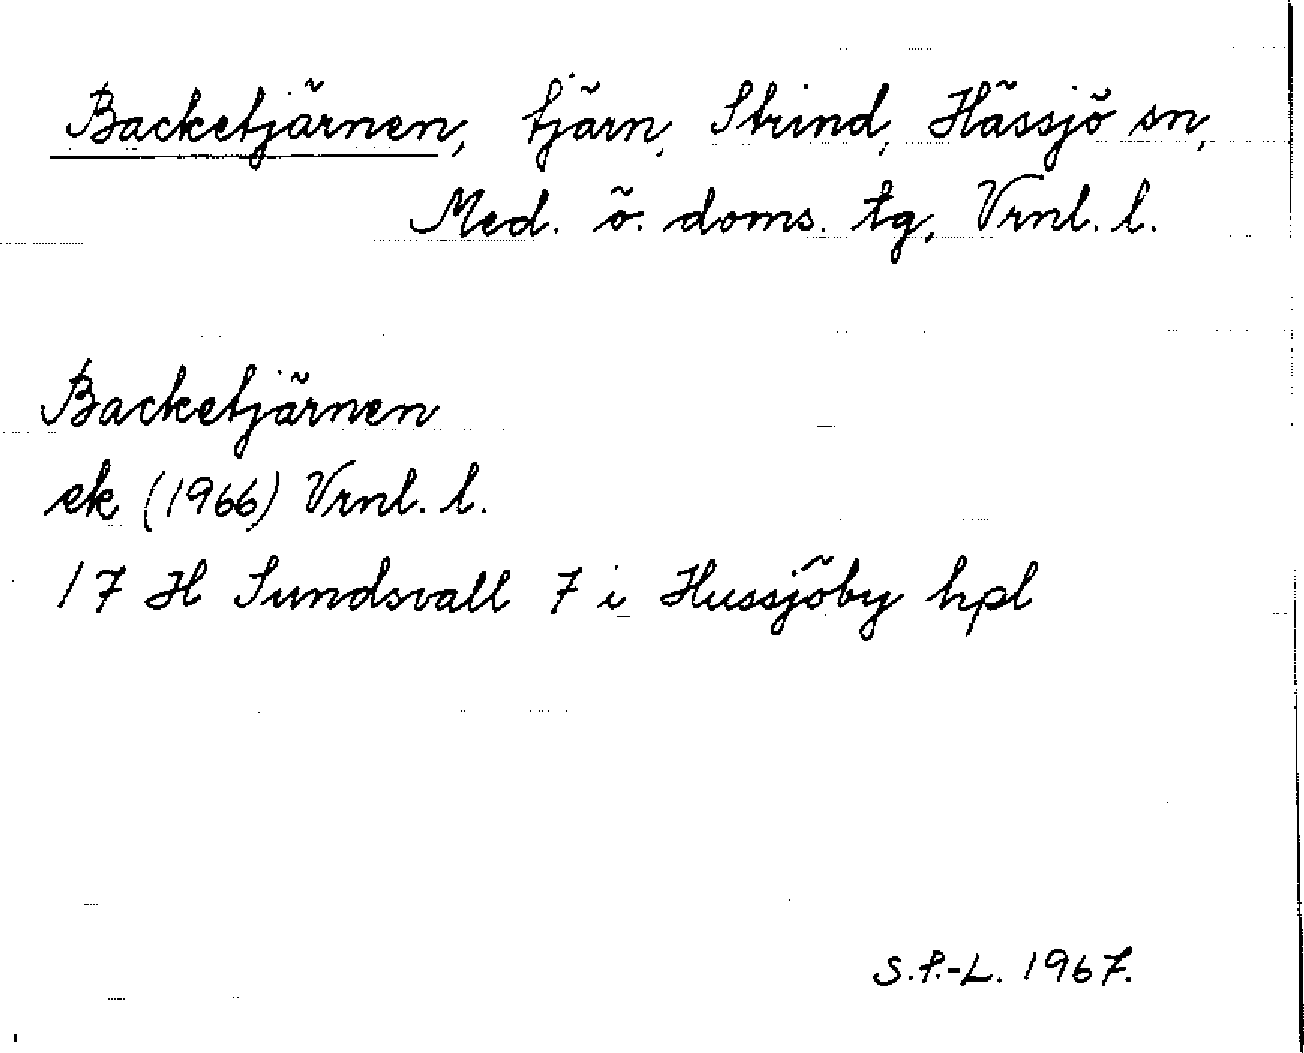 Backetjärnen, tjärn, Strind, Hässjö sn,
Med. ö. doms. tg, Vrnl. l.
Backetjärnen
ek (1966) Vrnl. l.
17 H Sundsvall 7 i Hussjöby hpl
S.P.-L. 1967.